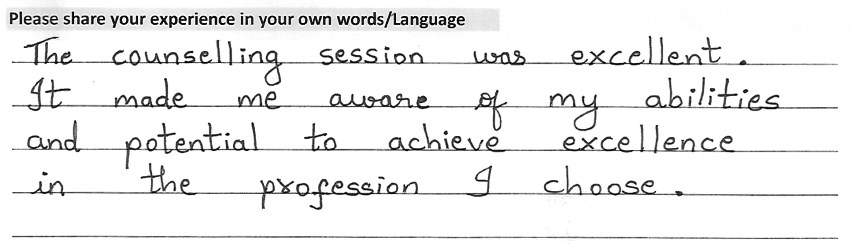 Please share your experience in your own words/Language
The counselling session was excellent.
It made me aware of my abilities
and potential to achieve excellence
in the profession I choose.